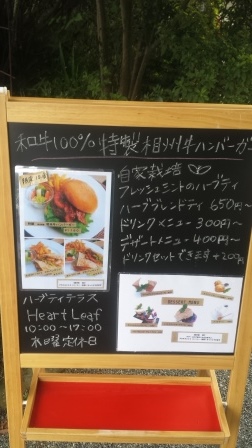 和牛100%特製相州牛ハンバーガ
自家栽培
フレッシュミントのハーブティ
ハーブブレンドティ 650円〜
ドリンクメニュー 300円〜
デザートメニュー 400円〜
ドリンクセットできます +200円
DESSERT MENU
ハーブティテラス
Heart Leaf
10:00〜17:00
水曜定休日